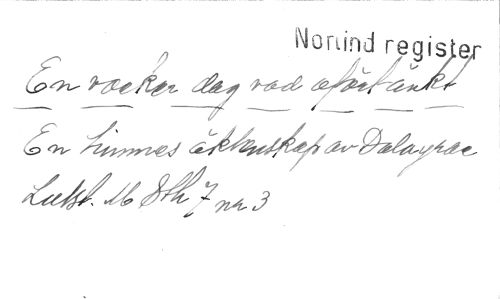 Norlind register
En vacker dag vad oförtänkt
En timmes äktenskap av Dalayrac
Lutst. M 8th 7 nr 3